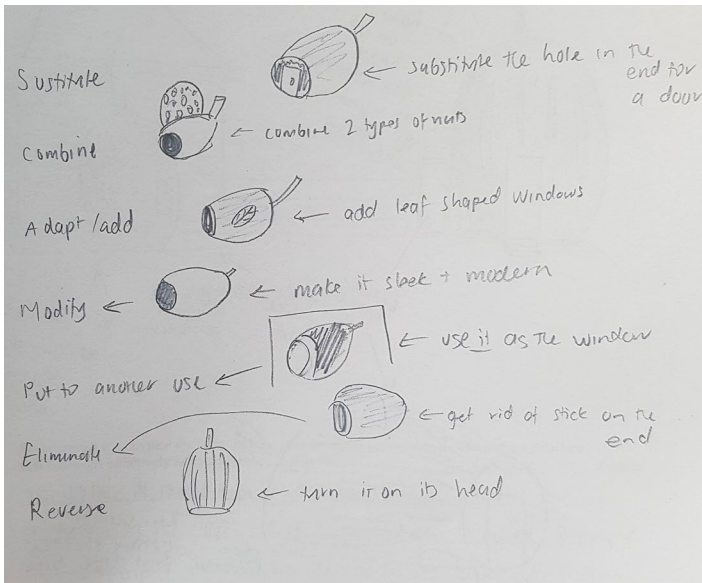 Sustitute
substitute the hole in the
end for
a door
Combine
combine 2 types of nuts
Adapt/add
add leaf shaped windows
Modify
make it sleek + modern
Put to another use
use it as the window
Eliminate
get rid of stick on the
end
Reverse
turn it on its head